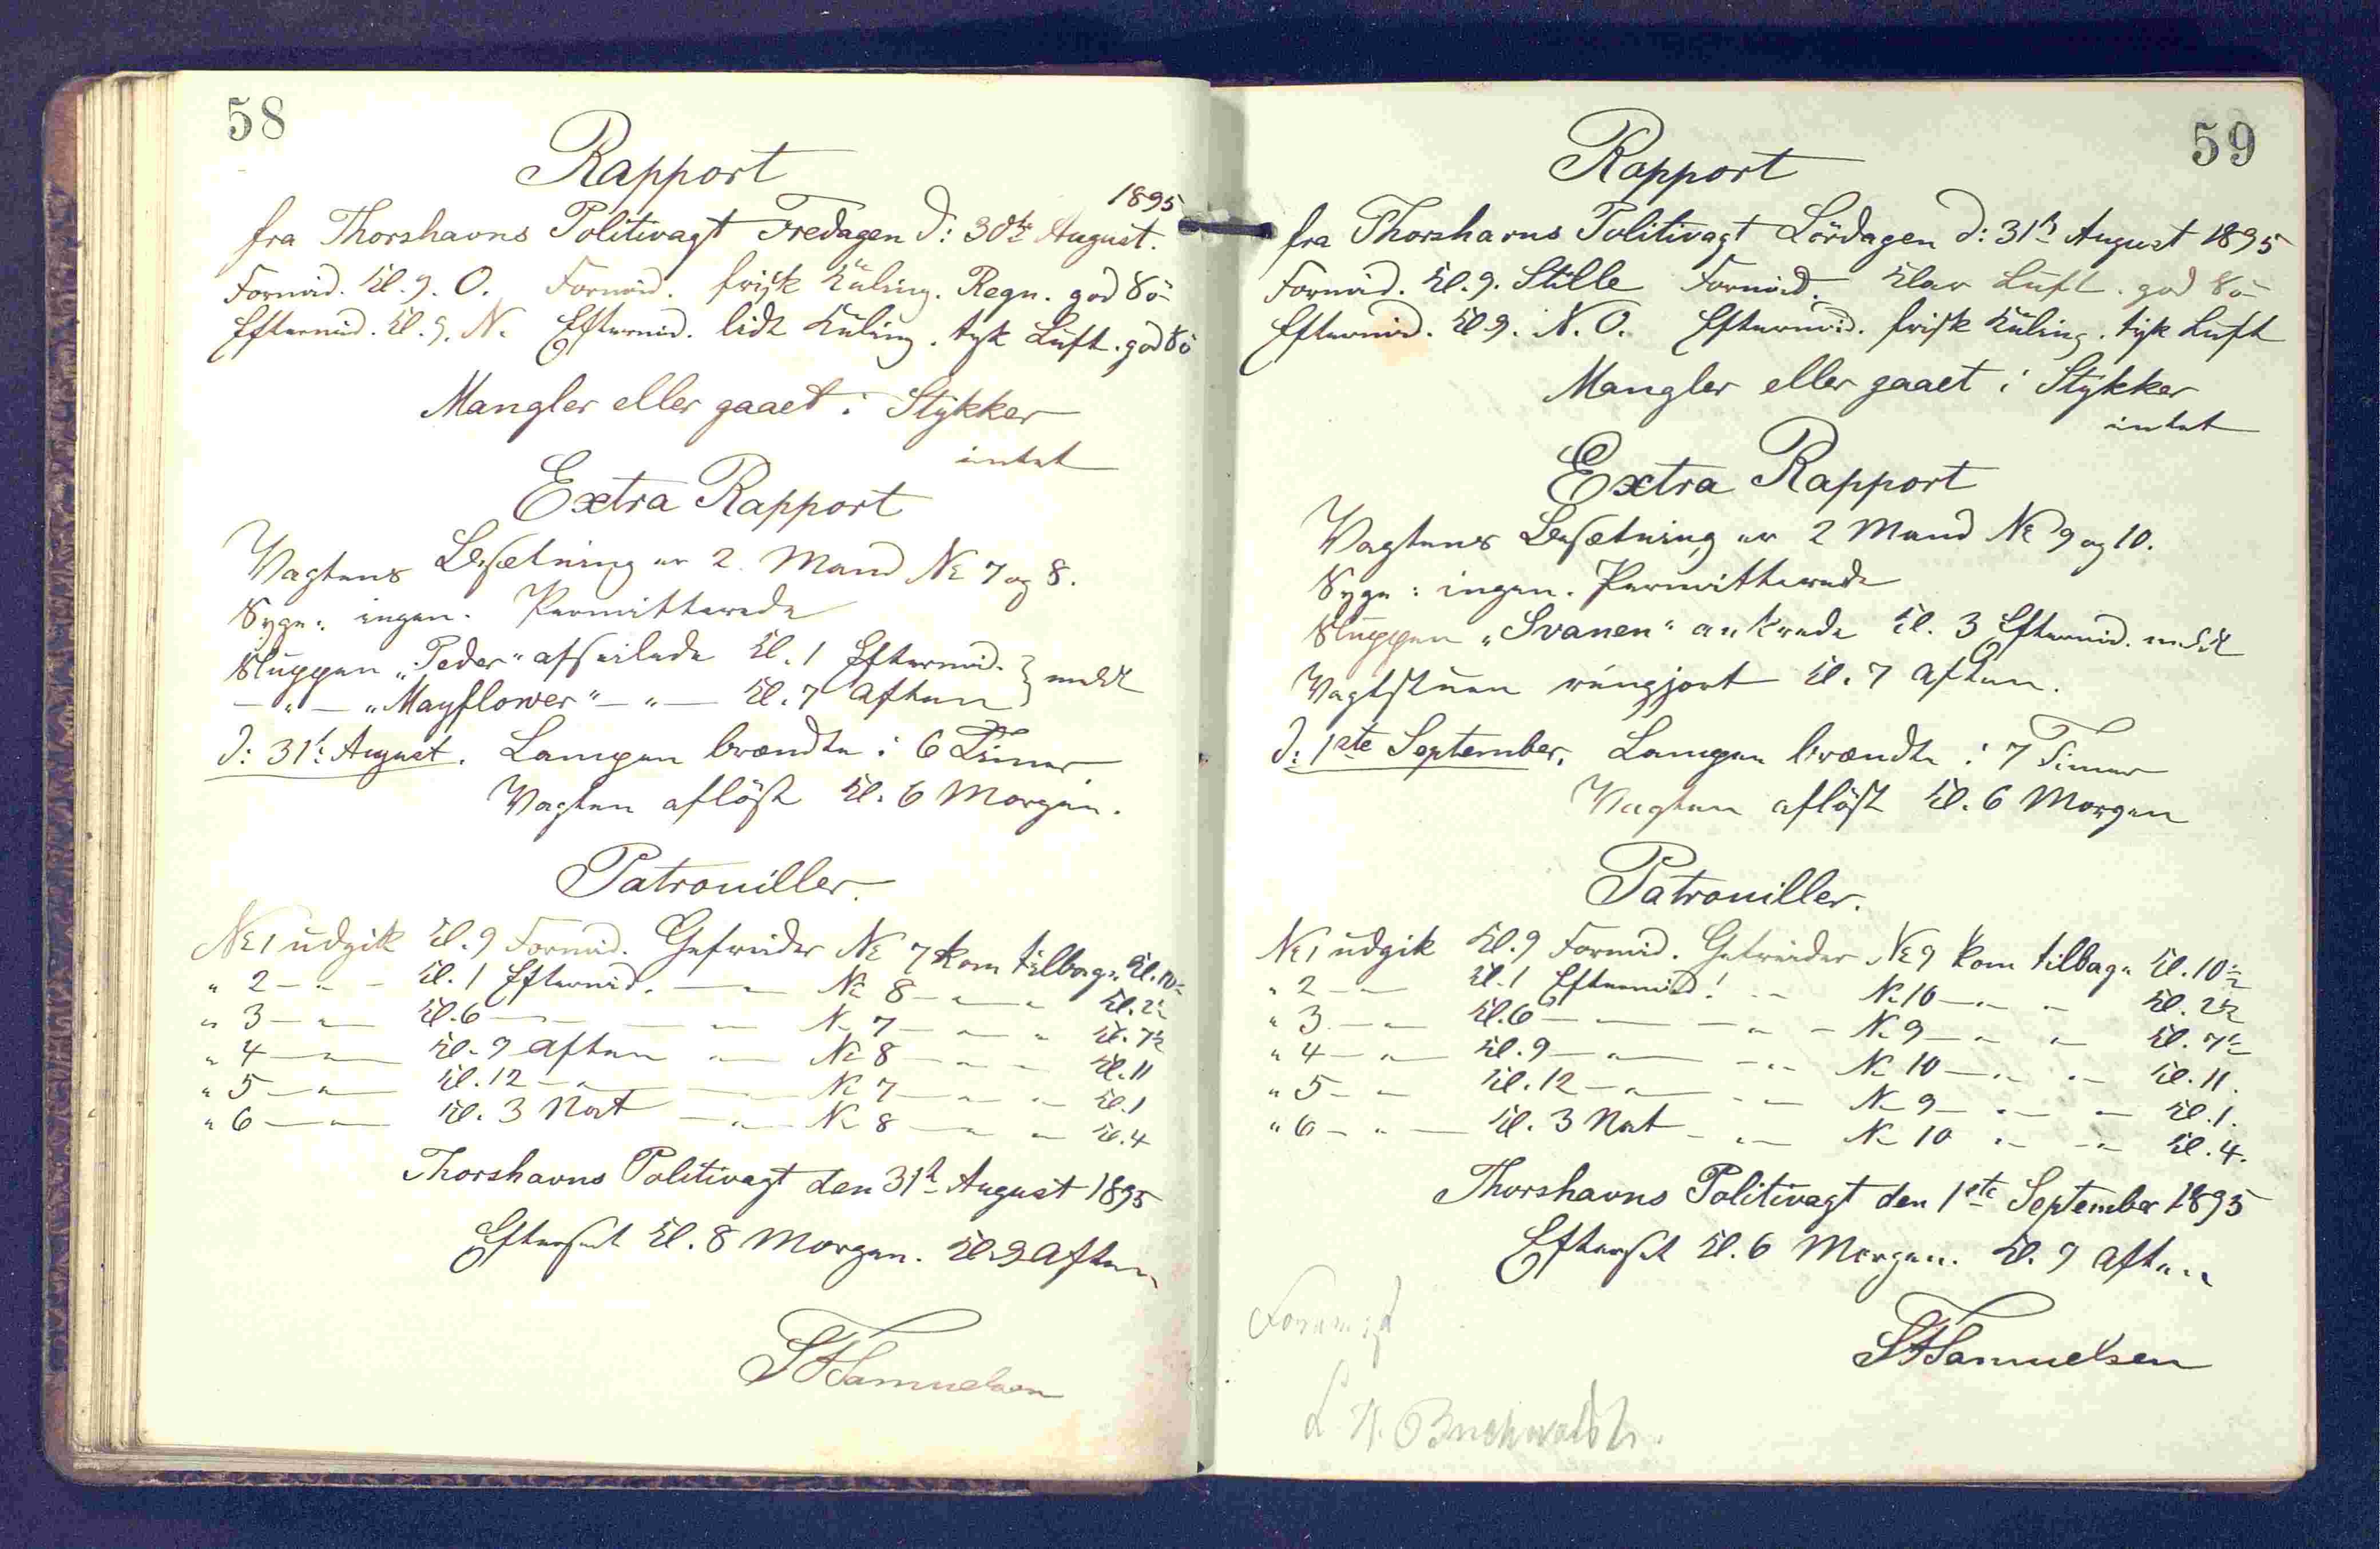 58
Rapport
1895
fra Thorshavns Politivagt Fredagen d: 30te August.
Formid. Kl. 9. O. Formid. frisk Kuling. Regn. god Sö
Eftermid. Kl. 9. N. Eftermid. lidt Kuling. tyk Luft. god Sö
Mangler eller gaaet i Stykker
intet
Extra Rapport
Vagtens Besætning er 2 Mand No 7 og 8.
Syge: ingen. Permitterede
Sluppen „Peder" afseilede Kl. 1 Eftermid. } meldt
— " — „Mayflower" — " — Kl. 7 Aften
d: 31te August. Lampen brændte i 6 Timer.
Vagten aflöst Kl. 6 Morgen.
Patrouiller.
No 1 udgik Kl. 9 Formid. Gefreider No 7 kom tilbage Kl. 10½
" 2 — " — Kl. 1 Eftermid. — " — No 8 — " — " Kl. 2½
" 3 — " — Kl. 6 — " — — " — No 7 — " — " Kl. 7½
" 4 — " — Kl. 9 Aften — " — No 8 — " — " Kl. 11
" 5 — " — Kl. 12 — " — — " — No 7 — " — " Kl. 1
" 6 — " — Kl. 3 Nat — " — No 8 — " — " Kl. 4
Thorshavns Politivagt den 31te August 1895
Efterset Kl. 8 Morgen. Kl. 9 Aften
Samuelsen
59
Rapport
fra Thorshavns Politivagt Lördagen d: 31te August 1895
Formid. Kl. 9. Stille Formid. Klar Luft. god Sö
Eftermid. Kl 9. N. O. Eftermid. frisk Kuling. tyk Luft
Mangler eller gaaet i Stykker
intet
Extra Rapport
Vagtens Besætning er 2 Mand No 9 og 10.
Syge: ingen. Permitterede
Sluppen „Svanen" ankrede Kl. 3 Eftermid. meldt
Vagtstuen rengjort Kl. 7 Aften.
d: 1ste September. Lampen brændte i 7 Timer
Vagten aflöst Kl. 6 Morgen
Patrouiller.
No 1 udgik Kl. 9 Formid. Gefreider No 9 kom tilbage Kl. 10½
" 2 — " — Kl. 1 Eftermid. — " — No 10 — " — " — Kl. 2½
" 3 — " — Kl. 6 — " — — " — No 9 — " — " — Kl. 7½
" 4 — " — Kl. 9 — " — — " — No 10 — " — " — Kl. 11.
" 5 — " — Kl. 12 — " — — " — No 9 — " — " — Kl. 1.
" 6 — " — Kl. 3 Nat — " — No 10 — " — " — Kl. 4.
Thorshavns Politivagt den 1ste September 1895
Efterset Kl. 6 Morgen. Kl. 9 Aften
Samuelsen